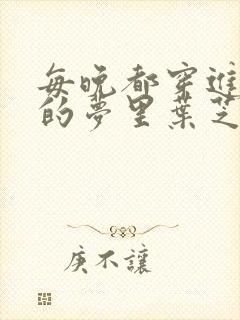 每晚都穿進
的夢里葉芝
庚不讓